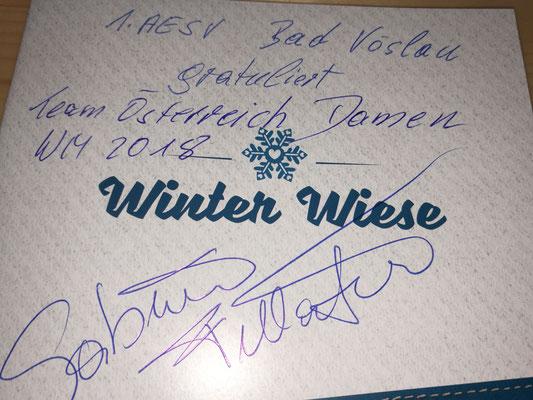 1. AESV Bad Vöslau
gratuliert
Team Österreich Damen
WM 2018
Winter Wiese